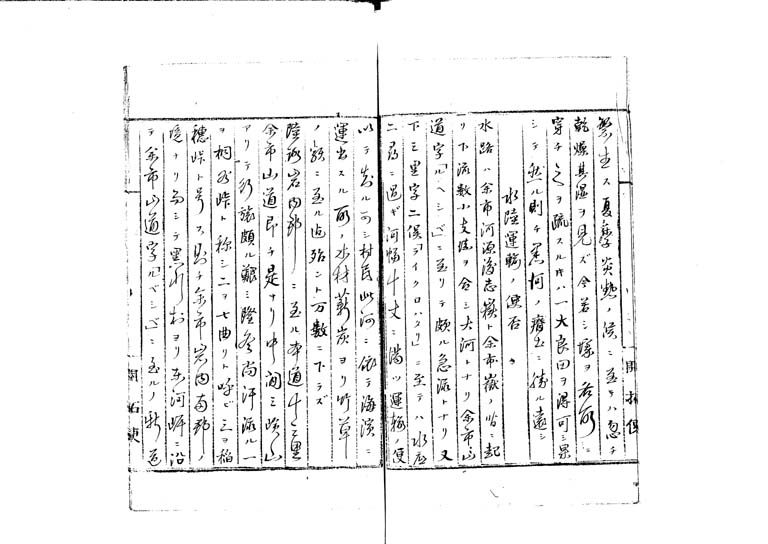 繁生ス夏季炎熱ノ候ニ至テハ忽チ
乾燥其湿ヲ見ズ今若シ渠ヲ右所ニ
穿チ之ヲ疏スル片ハ一大良田ヲ得可シ果
シテ然ル則チ薦柯ノ瘠土ニ勝ル遠シ
水陸運輸ノ便否
水路ハ余市河源後志嶽ト余市嶽ノ皆ニ起
リ下流数小支流ヲ合シ大河トナリ余市山
道字「ルベシベ」ニ至リテ頗ル急流トナリ又
下三里字二俣「テイクロハタ」ニ至テハ水底
二尋ニ過ギ河幅十丈ニ満ツ運輸ノ便
以テ知ル可シ村民此河ニ依テ海濱ニ
運出スル所ノ水材薪炭ヨリ竹草
ノ類ニ至ル迄殆ント万数ニ下ラズ
陸路岩内郡ニ至ル本道十二里
余市山道即チ是ナリ中間三峻山
アリテ行旅頗ル艱ミ隆冬尚汗流ル一
ヲ桐谷峠ト称シ二ヲ七曲リト呼ビ三ヲ稲
穂峠ト号ス則チ余市岩内両郡ノ
境ナリ而シテ黒川村ヨリ東河畔ニ沿
テ余市山道字「ルベシベ」ニ至ルノ新道
開拓使
開拓使